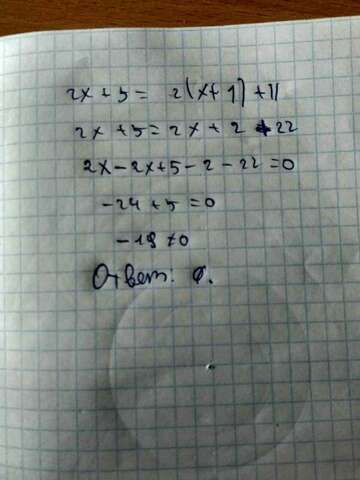 2x + 5 = 2(x + 1) + 11
2x + 5 = 2x + 2 + 22
2x - 2x + 5 - 2 - 22 = 0
-24 + 5 = 0
-19 ≠ 0
Ответ: ∅.